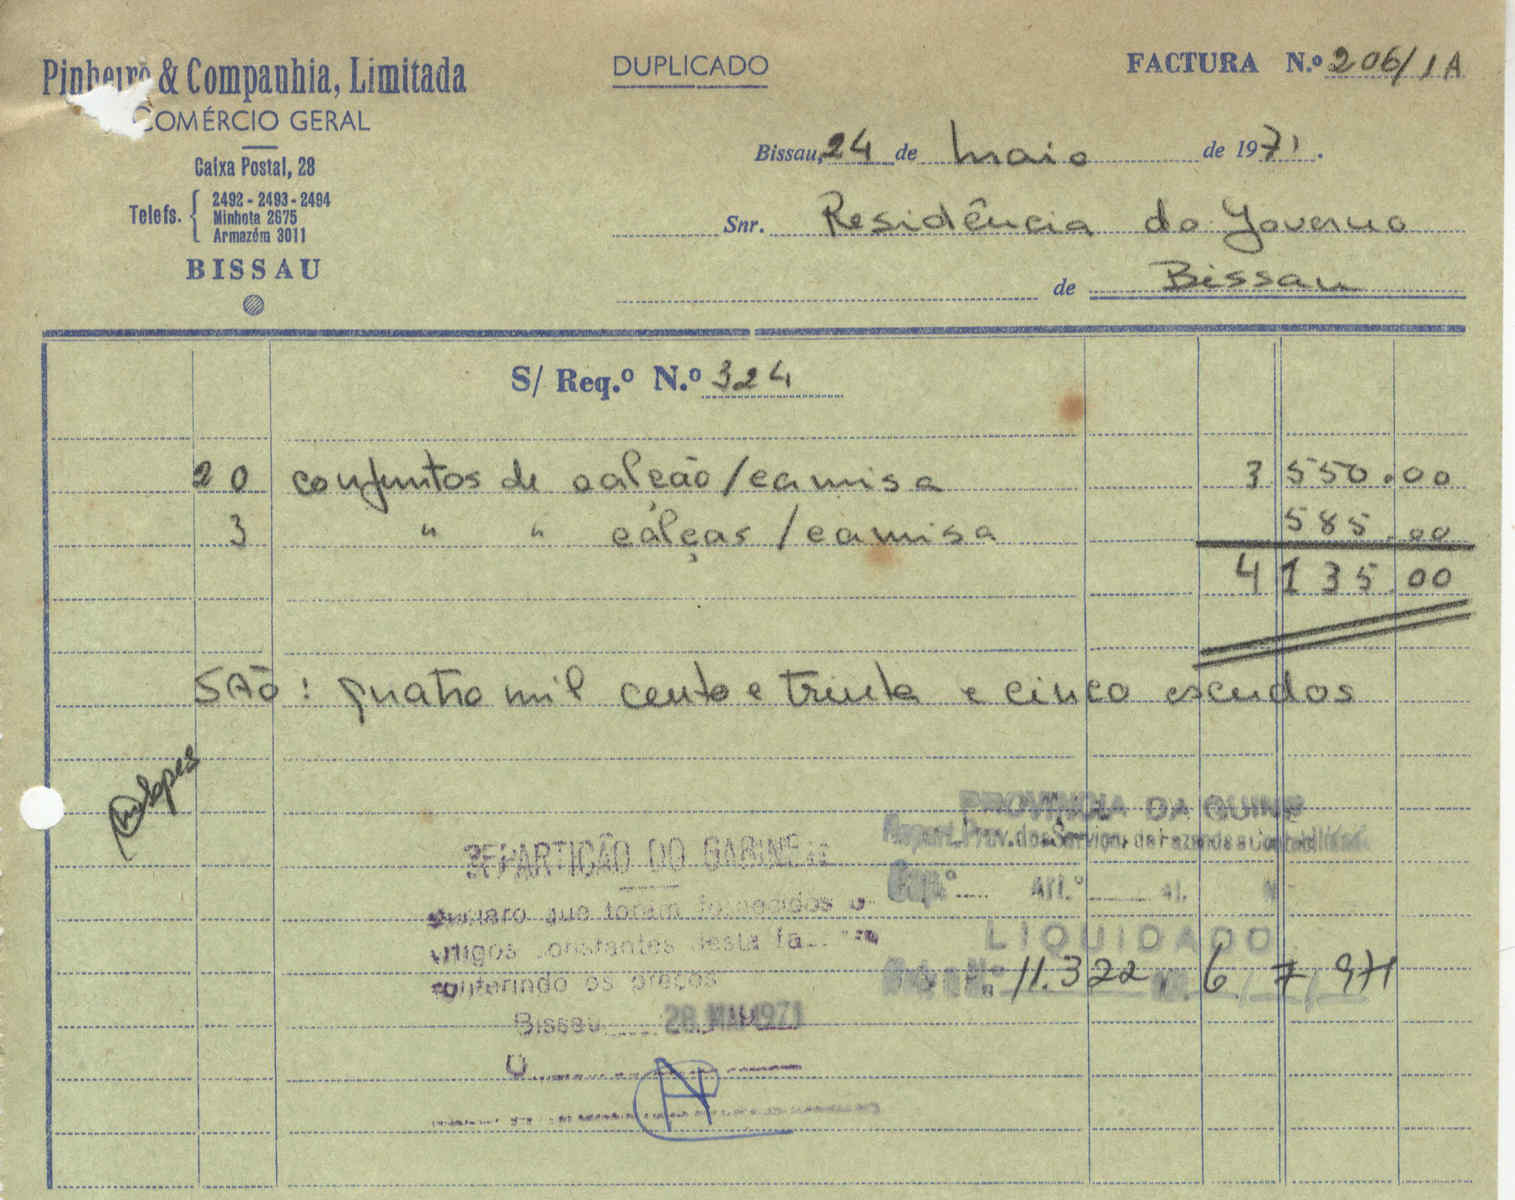 Pinheiro & Companhia, Limitada
COMÉRCIO GERAL
Caixa Postal, 28
Telefs. 2492 - 2493 - 2494
Minhota 2675
Armazém 3011
BISSAU
DUPLICADO
FACTURA N.º 206/1A
Bissau, 24 de maio de 1971.
Snr. Residência do Governo
de Bissau
S/ Req.º N.º 324
20 conjuntos de calção/camisa 3 550.00
3 " " calças/camisa 585.00
4 135.00
SÃO: quatro mil cento e trinta e cinco escudos
Lopes
PROVÍNCIA DA GUINÉ
Repart. Prov. dos Serviços de Fazenda e Contabilidade
Cap.º Art.º N.
LIQUIDADO
N.º 11.322 6/7/971
REPARTIÇÃO DO GABINETE
que foram fornecidos o
artigos constantes desta
conferindo os preços
Bissau 28 MAI 1971
O